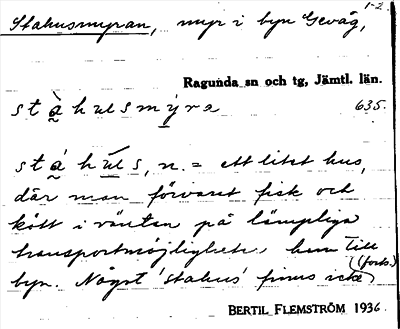 1-2.
Stahusmyran, myr i byn Gevåg,
Ragunda sn och tg, Jämtl. län.
stàhulsmyra 635.
stá húls, n. = ett litet hus,
där man förvarat fisk och
kött i väntan på lämpliga
transportmöjligheter hem till
byn. Något 'stahus' finns icke
(forts.)
BERTIL FLEMSTRÖM 1936